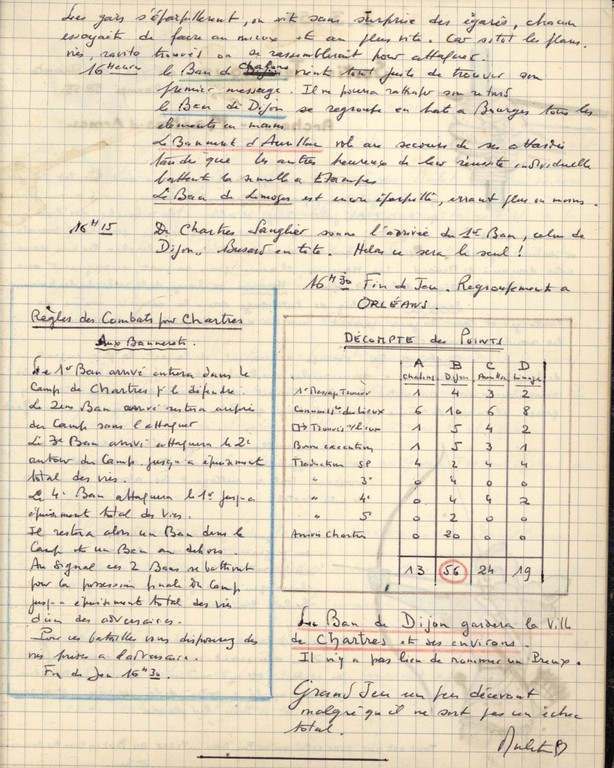 Les gars s'éparpillèrent, on vit sans surprise des égarés, chacun
essayait de faire au mieux et au plus vite. Car sitôt les plans,
vies, ravito trouvés on se rassemblerait pour attaquer.
16 Heure le Ban de Chalons vient tout juste de trouver son
premier message. Il ne pourra rattraper son retard
le Ban de Dijon se regroupe en hate a Bourges tous les
éléments en mains
Le Banneret d'Aurillac vole au secours de ses attardés
tandis que les autres heureux de leur réussite individuelle
battent la semelle a Etampes
Le Ban de Limoges est encore éparpillé, errant plus ou moins.
16H15 De Chartres Sanglier sonne l'arrivée du 1er Ban, celui de
Dijon, Busard en tête. Hélas ce sera le seul !
16H30 Fin de Jeu. Regroupement a
ORLÉANS.
Règles des Combats pour Chartres
Aux Bannerets.
Le 1er Ban arrivé entrera dans le
Camp de Chartres pr le défendre
Le 2eme Ban arrivé restera auprès
du Camp sans l'attaquer
Le 3e Ban arrivé attaquera le 2e
autour du Camp jusqu'a épuisement
total des vies.
Le 4e Ban attaquera le 1er jusqu'a
épuisement total des vies.
Il restera alors un Ban dans le
Camp et un Ban au dehors.
Au signal ces 2 Bans se battront
pour la possession finale du Camp
jusqu'a épuisement total des vies
d'un des adversaires.
Pour ces batailles vous disposerez des
vies prises a l'adversaire.
Fin de Jeu 16H30.
DÉCOMPTE des POINTS
A B C D
Chalons Dijon Aurillac Limoges
1er Message Trouvé 1 4 3 2
Connaissce des Lieux 6 10 6 8
Trouvés 1 5 4 2
Bonne execution 1 5 3 1
Traduction 4 2 4 4
" 3e 0 4 0 0
" 4e 0 4 4 2
" 5e 0 2 0 0
Arrivée Chartres 0 20 0 0
13 56 24 19
Le Ban de Dijon gardera la Ville
de Chartres et ses environs.
Il n'y a pas lieu de nommer un Preux.
Grand Jeu un peu décevant
malgré qu'il ne sort pas un échec
total.